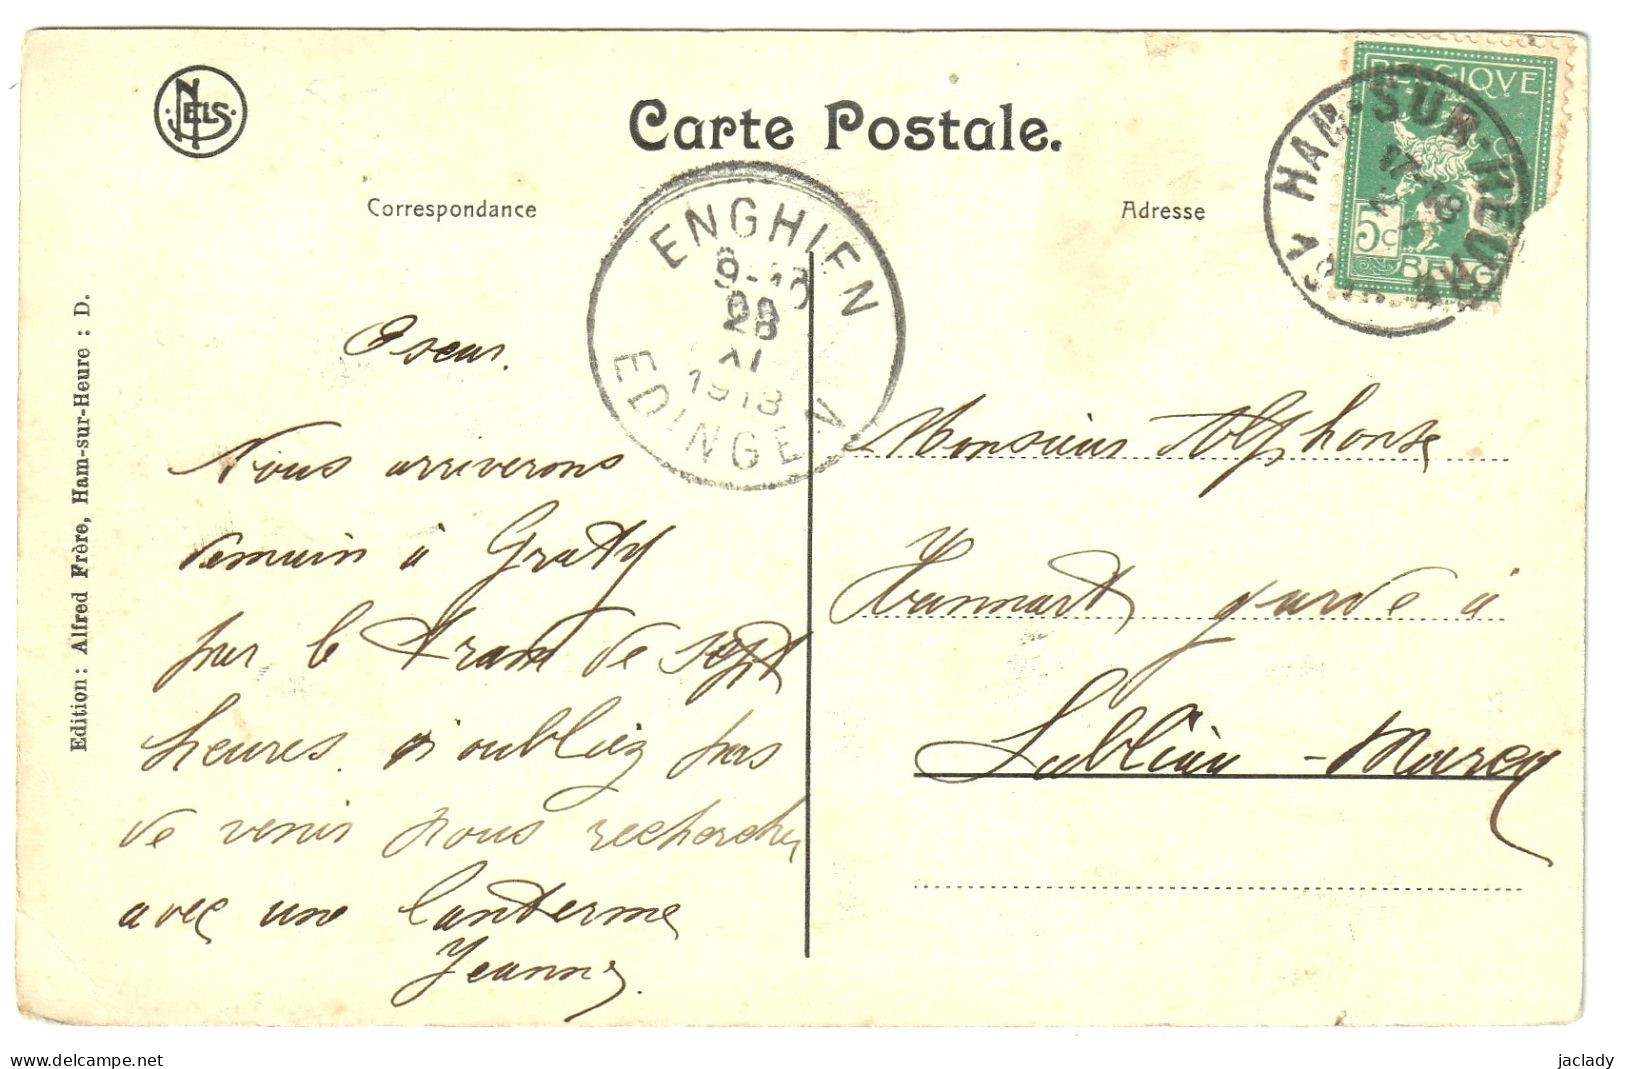 NELS
Carte Postale.
Correspondance
Adresse
BELGIQUE
5c
BELG
HAM-SUR-HEURE
17-18
ENGHIEN
28
XI
1913
EDINGEN
Edition: Alfred Frère, Ham-sur-Heure : D.
Oscar.
Nous arriverons
demain à Graty
par le tram de sept
heures. n'oubliez pas
de venir nous rechercher
avec une lanterne
Jeanne.
Monsieur Alphonse
Hannart garde à
-Marcq
www.delcampe.net
jaclady